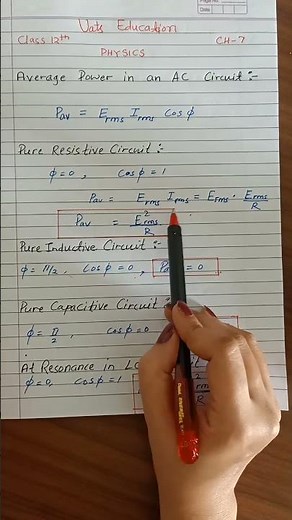 Page No.
Date
Vats Education
Class 12th CH-7
PHYSICS
Average Power in an AC Circuit :-
Pav = Erms Irms Cos φ
Pure Resistive Circuit :-
φ = 0, Cos φ = 1
Pav = Erms Irms = Erms . Erms/R
Pav = E²rms/R
Pure Inductive Circuit :-
φ = π/2, Cos φ = 0, Pav = 0
Pure Capacitive Circuit :-
φ = π/2, Cos φ = 0
At Resonance in
φ = 0, Cos φ = 1